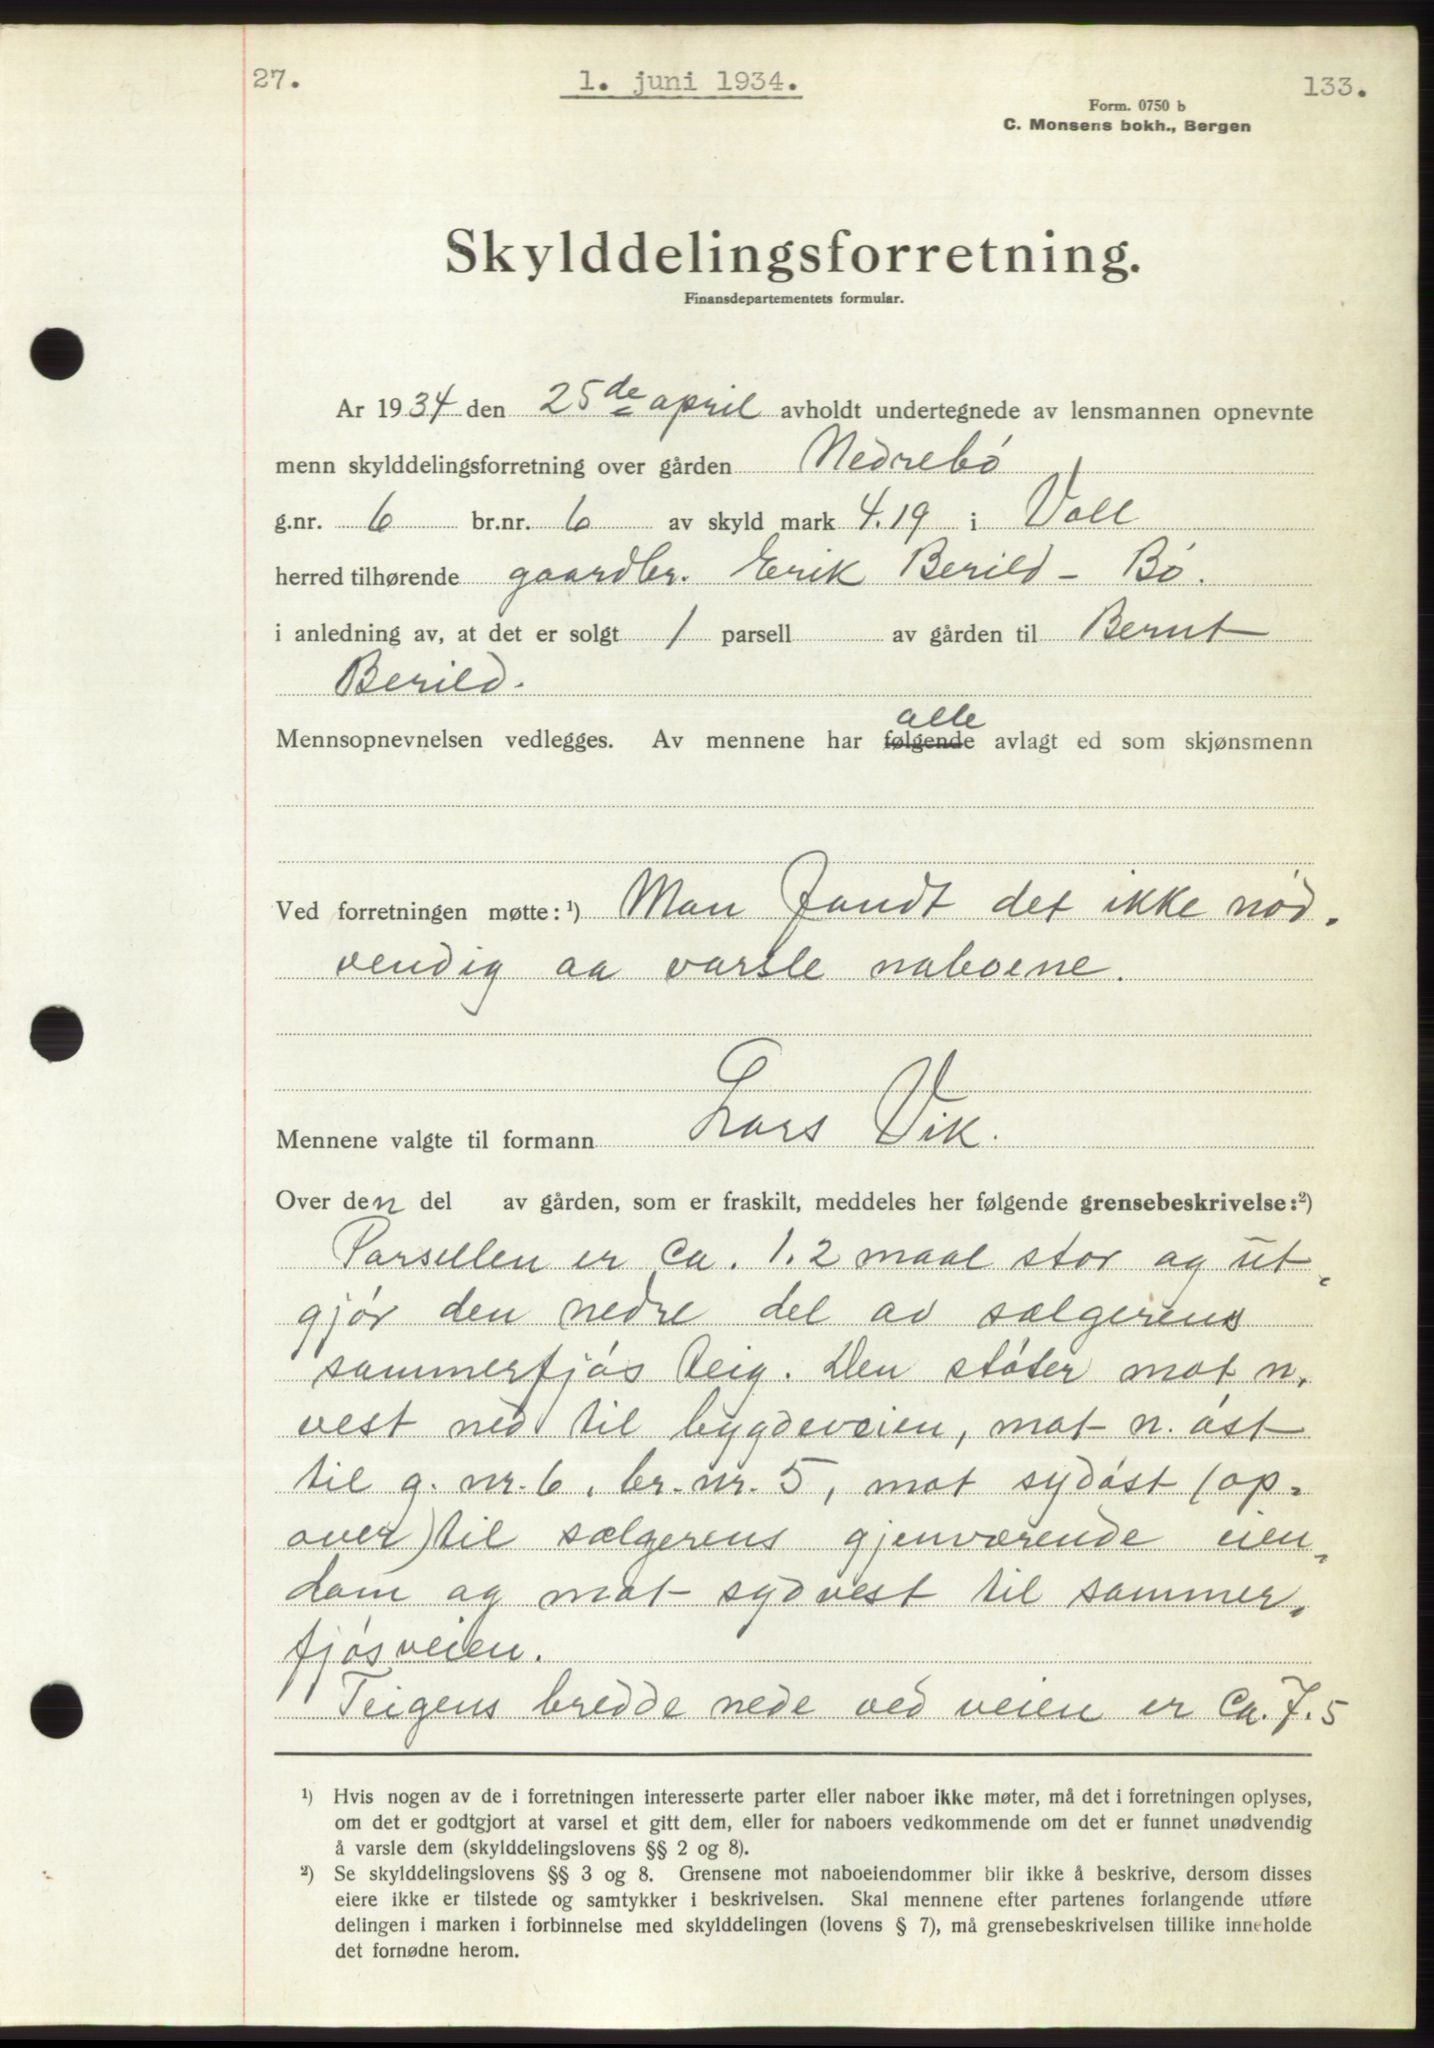 27. 1. juni 1934. 133.
Form. 0750 b
C. Monsens bokh., Bergen
Skylddelingsforretning.
Finansdepartementets formular.
Ar 1934 den 25de april avholdt undertegnede av lensmannen opnevnte
menn skylddelingsforretning over gården Nedrebø
g.nr. 6 br.nr. 6 av skyld mark 4.19 i Voll
herred tilhørende gaardbr. Erik Berild - Bø.
i anledning av, at det er solgt 1 parsell av gården til Bernt
Berild.
alle
Mennsopnevnelsen vedlegges. Av mennene har følgende avlagt ed som skjønsmenn
Ved forretningen møtte: ¹) Man fandt det ikke nød-
vendig aa varsle naboene.
Mennene valgte til formann Lars Vik.
Over den del av gården, som er fraskilt, meddeles her følgende grensebeskrivelse: ²)
Parsellen er ca. 1.2 maal stor og ut-
gjør den nedre del av sælgerens
sommerfjøs teig. Den støter mot n.
vest ned til bygdeveien, mot n. øst
til g. nr. 6, br. nr. 5, mot sydøst (op-
over) til sælgerens gjenværende eien-
dom og mot sydvest til sommer-
fjøsveien.
Teigens bredde nede ved veien er ca. 7.5
¹) Hvis nogen av de i forretningen interesserte parter eller naboer ikke møter, må det i forretningen oplyses,
om det er godtgjort at varsel et gitt dem, eller for naboers vedkommende om det er funnet unødvendig
å varsle dem (skylddelingslovens §§ 2 og 8).
²) Se skylddelingslovens §§ 3 og 8. Grensene mot naboeiendommer blir ikke å beskrive, dersom disses
eiere ikke er tilstede og samtykker i beskrivelsen. Skal mennene efter partenes forlangende utføre
delingen i marken i forbinnelse med skylddelingen (lovens § 7), må grensebeskrivelsen tillike inneholde
det fornødne herom.